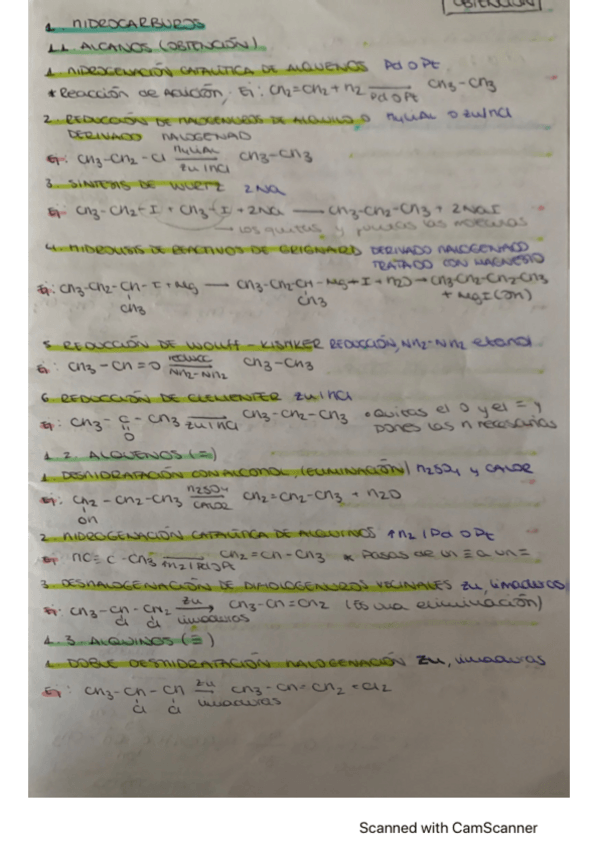 OBTENCIÓN
1. HIDROCARBUROS
1.1. ALCANOS (OBTENCIÓN)
1. HIDROGENACIÓN CATALÍTICA DE ALQUENOS Pd O Pt
* Reacción de Adición. Ej: CH2=CH2 + H2 → Pd O Pt CH3-CH3
2. REDUCCIÓN DE HALOGENUROS DE ALQUILO O HyLiAL O Zn/HCl
DERIVADO HALOGENADO
Ej: CH3-CH2-Cl HyLiAL Zn/HCl CH3-CH3
3. SÍNTESIS DE WURTZ 2Na
Ej: CH3-CH2-I + CH3-I + 2Na → CH3-CH2-CH3 + 2NaI
→ Los quitas y juntas las
4. HIDRÓLISIS DE REACTIVOS DE GRIGNARD DERIVADO HALOGENADO
TRATADO CON MAGNESIO
Ej: CH3-CH2-CH-I + Mg → CH3-CH2-CH-Mg-I + H2O → CH3-CH2-CH2-CH3
CH3 CH3 + MgI(OH)
5. REDUCCIÓN DE WOLFF-KISHKER REDUCCIÓN, NH2-NH2 etanol
Ej: CH3-CH=O reducc NH2-NH2 CH3-CH3
6. REDUCCIÓN DE CLEMENTER Zn/HCl
Ej: CH3-C-CH3 → Zn/HCl CH3-CH2-CH3 • Quitas el O y el = y
O pones las H necesarias
1.2. ALQUENOS (=)
1. DESHIDRATACIÓN CON ALCOHOL, (ELIMINACIÓN) H2SO4 y CALOR
Ej: CH2-CH2-CH3 H2SO4 CALOR CH2=CH2-CH3 + H2O
OH
2. HIDROGENACIÓN CATALÍTICA DE ALQUINOS +H2 / Pd O Pt
Ej: HC≡C-CH3 → CH2=CH-CH3 * Pasas de un ≡ a un =
3. DESHALOGENACIÓN DE DIHALOGENUROS VECINALES Zn, limaduras
Ej: CH3-CH-CH2 Zn → limaduras CH3-CH=CH2 (Es una eliminación)
Cl Cl
1.3. ALQUINOS (≡)
1. DOBLE DESHIDRATACIÓN HALOGENACIÓN Zn, limaduras
Ej: CH3-CH-CH Zn → limaduras CH3-CH=CH2=Cl2
Cl Cl
Scanned with CamScanner